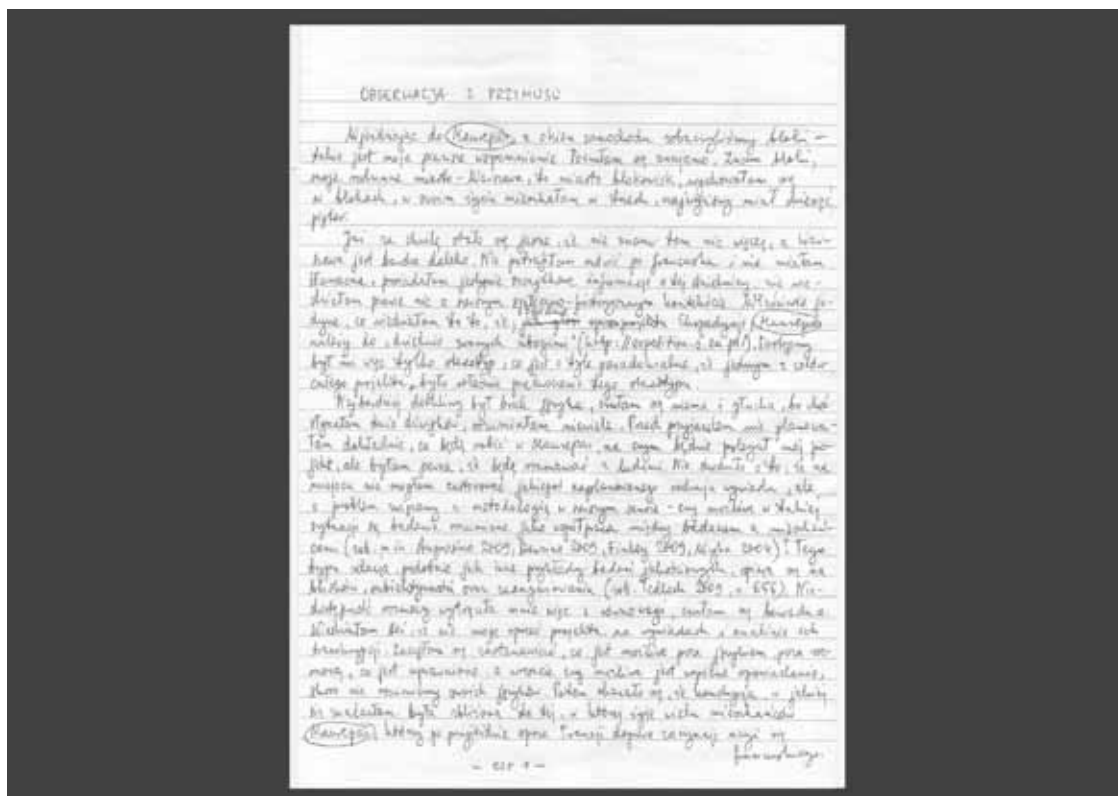 OBSERWACJA Z PRZYMUSU
Wjeżdżając do Maurepas, z okien samochodu zobaczyliśmy bloki –
takie jest moje pierwsze wspomnienie. Poczułam się znajomo. Znam bloki,
moje rodzinne miasto – Warszawa, to miasto blokowisk, wychowałam się
w blokach, w swoim życiu mieszkałam w trzech, najwyższy miał dziesięć
pięter.
Już za chwilę stało się jasne, że nie znam tam nic więcej, a Warszawa
jest bardzo daleko. Nie potrafiłam mówić po francusku i nie miałam
tłumacza, posiadałam jedynie szczątkowe informacje o tej dzielnicy, nie wie-
działam prawie nic o
co wiedziałam to to, że Ekspedycji Maurepas
należy do "dzielnic zwanych
był więc tylko stereotyp, co jest o tyle paradoksalne, że jednym z celów
całego projektu, było właśnie przełamanie tego stereotypu.
Najbardziej dotkliwy był brak języka, czułam się niema i głucha, bo choć
słyszałam dużo dźwięków, rozumiałam niewiele. Przed przyjazdem nie planowa-
łam dokładnie, co będę robić w Maurepas, na czym będzie polegał mój pro-
jekt, ale byłam pewna, że będę rozmawiać z ludźmi. Nie chodziło o to, że na
miejscu nie mogłam zastosować jakiegoś zaplanowanego rodzaju wywiadu, ale
o problem związany z metodologią w szerszym sensie – czy możliwe w takiej
sytuacji są badania rozumiane jako współpraca między badaczem a
(zob. m.in. Angrosino 2009, 2009, Finlay 2009, 2004)? Tego
typu relacja, podobnie jak inne przykłady badań jakościowych, opiera się na
bliskości, subiektywności oraz zaangażowaniu (zob. Tedlock 2009, s. 656). Nie-
dostępność rozmowy wytrąciła mnie więc z równowagi, czułam się bezradna.
Wiedziałam też, że nie mogę oprzeć projektu na wywiadach i analizie ich
transkrypcji. Zaczęłam się zastanawiać, co jest możliwe poza językiem, poza roz-
mową, co jest uprawnione a wreszcie czy możliwe jest wspólne opowiadanie,
skoro nie rozumiemy swoich języków. Potem okazało się, że kondycja, w jakiej
się znalazłam była zbliżona do tej, w której żyje wielu mieszkańców
Maurepas, którzy po przyjeździe do Francji dopiero zaczynają uczyć się
francuskiego.
– str 1 –